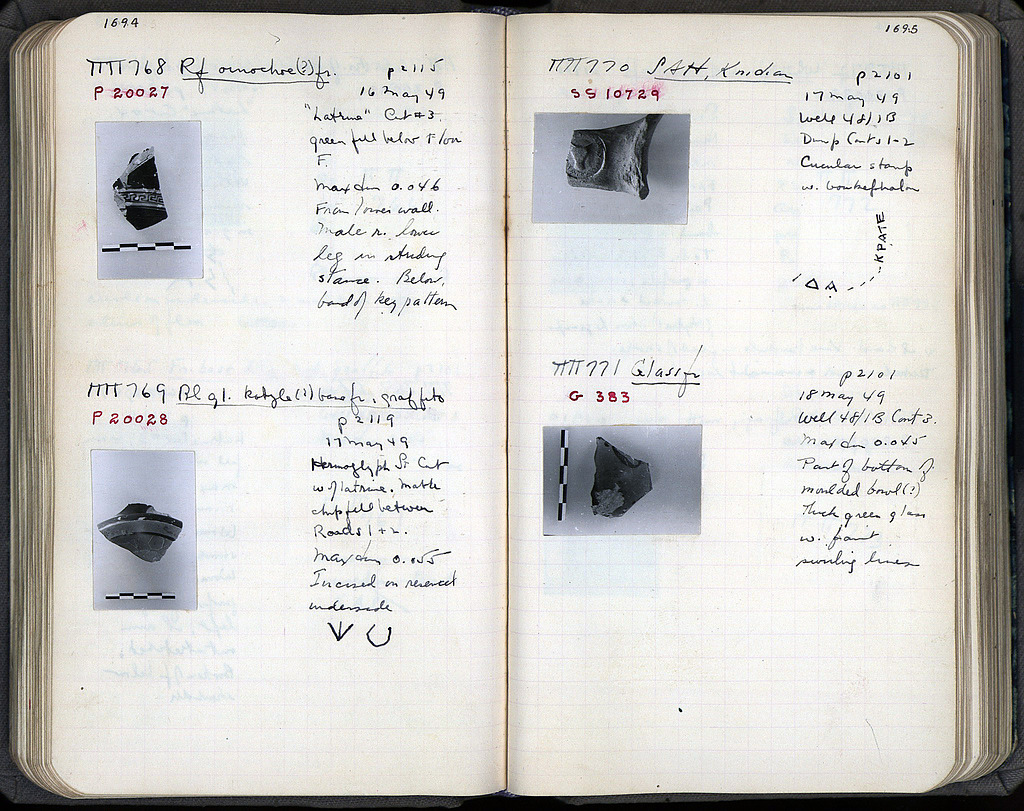 1694
ΠΠ768 Rf oinochoe(?) fr. p 2115
P 20027
16 May 49
"Latrine" Cut #3.
green fill below Floor
F.
Max dim 0.046
From lower wall.
Male r. lower
leg in striding
stance. Below,
band of key pattern
ΠΠ769 Bl gl. kotyle(?) base fr., graffito
P 20028
p 2119
17 May 49
Hermoglyph St Cut
w of latrine. Marble
chip fill between
Roads 1 + 2.
Max dim 0.055
Incised on reserved
underside
1695
ΠΠ770 SAH, Knidian p 2101
SS 10729
17 May 49
Well 48/1B
Dump Conts 1-2
Circular stamp
w. boukephalon
ΔΑ ... ΚΡΑΤΕ
ΠΠ771 Glass fr
G 383
p 2101
18 May 49
Well 48/1B Cont 3.
Max dim 0.045
Part of bottom of
moulded bowl(?)
Thick green glass
w. faint
swirling lines